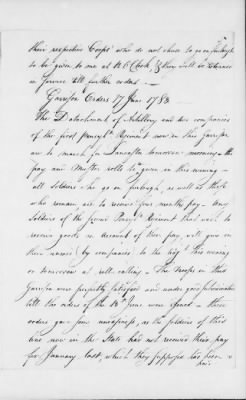 their respective Corps who do not chuse to go on furlough
to be given to one at 12 O Clock, & they will be returned
in service till further orders —
Garrison Orders 17 June 1783
The Detachment of Artillery and two companies
of the first Pennsyl. Regiment now in this Garrison
are to march for Lancaster tomorrow morning the
pay and Muster rolls to given in this evening —
all soldiers who go on furlough, as well as those
who remain, are to receive four months pay — Any
Soldiers of the Regiment that wish to
receive goods on account of their pay, will give in
their names (by companies) to the this evening
or tomorrow at roll calling — The troops in this
Garrison were perfectly satisfied and under good subordination
till the orders of the 13th June were issued — these
orders gave some uneasiness, as the soldiers of this
line now in the State had not received their pay
for January last, which they supposed had been
paid